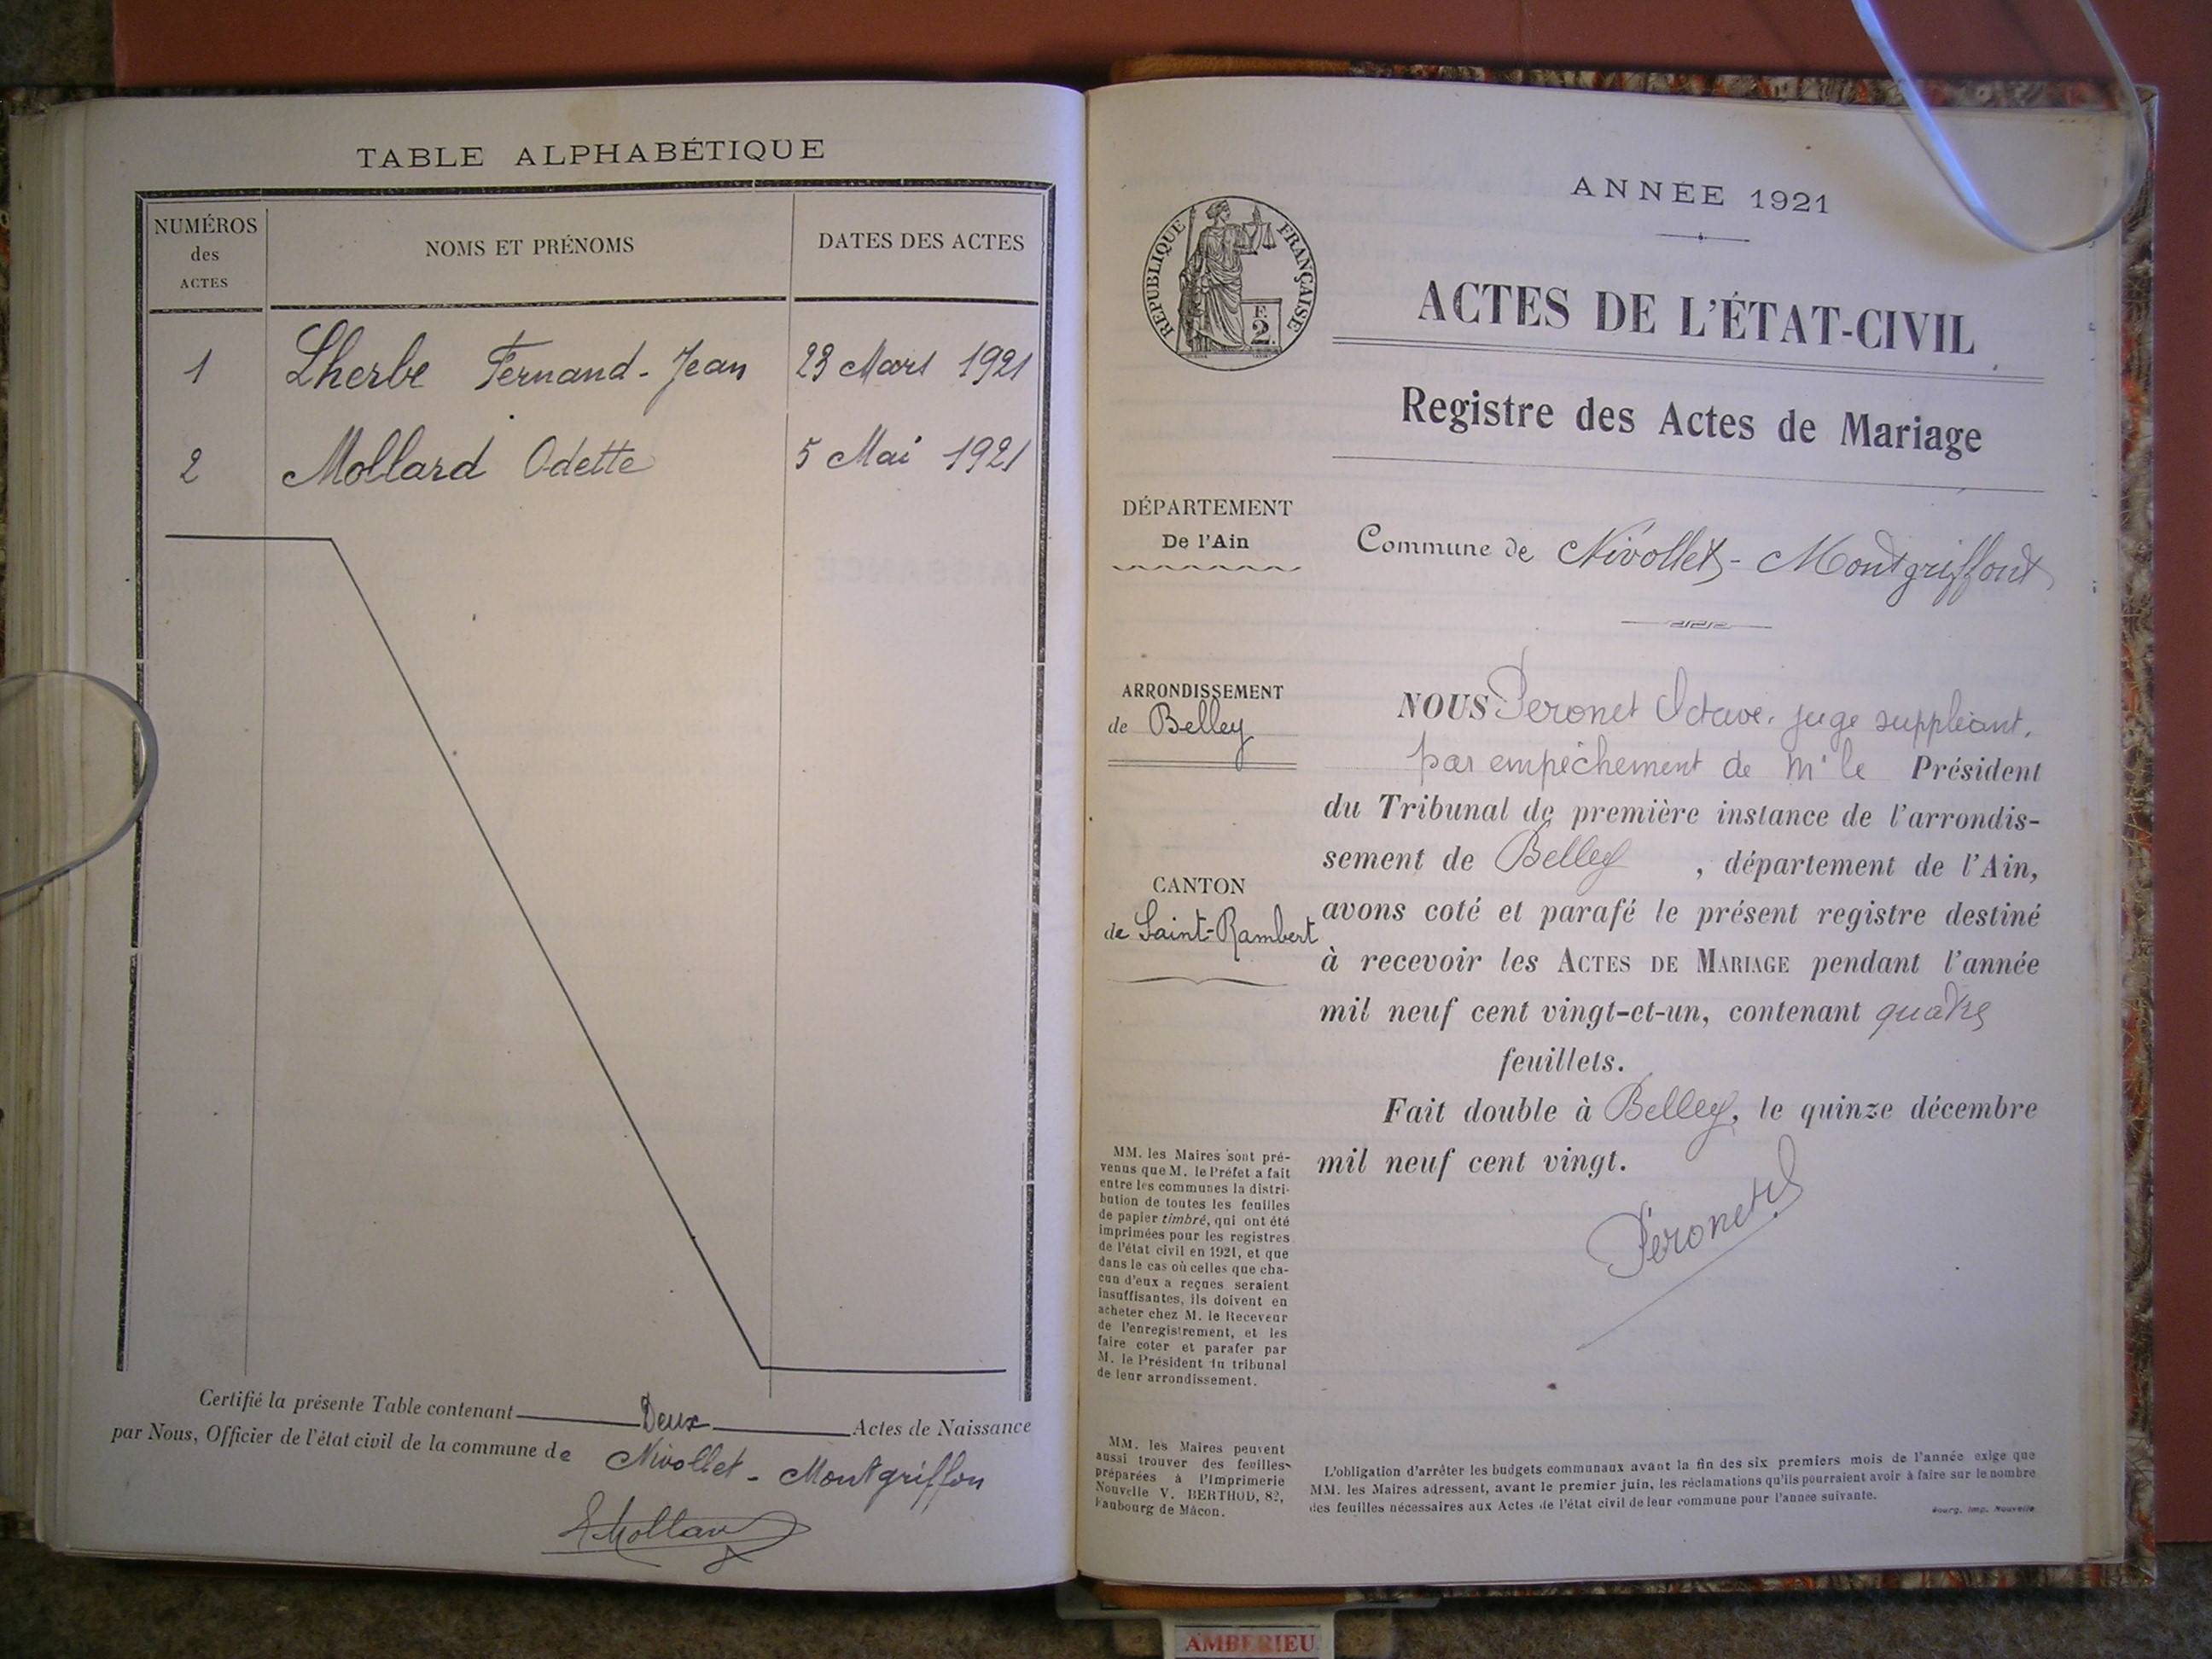 TABLE ALPHABÉTIQUE
NUMÉROS
des
ACTES
NOMS ET PRÉNOMS
DATES DES ACTES
1 Lherbe Fernand-Jean 23 Mars 1921
2 Mollard Odette 5 Mai 1921
Certifié la présente Table contenant Deux Actes de Naissance
par Nous, Officier de l'état civil de la commune de Nivollet-Montgriffon
Mollard
ANNÉE 1921
RÉPUBLIQUE FRANÇAISE
F.
2.
ACTES DE L'ÉTAT-CIVIL
Registre des Actes de Mariage
DÉPARTEMENT
De l'Ain
Commune de Nivollet-Montgriffont
ARRONDISSEMENT
de Belley
CANTON
de Saint-Rambert
NOUS Peronet Octave, juge suppléant,
par empêchement de Mr le Président
du Tribunal de première instance de l'arrondis-
sement de Belley, département de l'Ain,
avons coté et parafé le présent registre destiné
à recevoir les ACTES DE MARIAGE pendant l'année
mil neuf cent vingt-et-un, contenant quatre
feuillets.
Fait double à Belley, le quinze décembre
mil neuf cent vingt.
Péronet
MM. les Maires sont pré-
venus que M. le Préfet a fait
entre les communes la distri-
bution de toutes les feuilles
de papier timbré, qui ont été
imprimées pour les registres
de l'état civil en 1921, et que
dans le cas où celles que cha-
cun d'eux a reçues seraient
insuffisantes, ils doivent en
acheter chez M. le Receveur
de l'enregistrement, et les
faire coter et parafer par
M. le Président du tribunal
de leur arrondissement.
MM. les Maires peuvent
aussi trouver des feuilles
préparées à l'Imprimerie
Nouvelle V. BERTHOD, 82,
Faubourg de Mâcon.
L'obligation d'arrêter les budgets communaux avant la fin des six premiers mois de l'année exige que
MM. les Maires adressent, avant le premier juin, les réclamations qu'ils pourraient avoir à faire sur le nombre
des feuilles nécessaires aux Actes de l'état civil de leur commune pour l'année suivante.
Bourg, Imp. Nouvelle
AMBERIEU